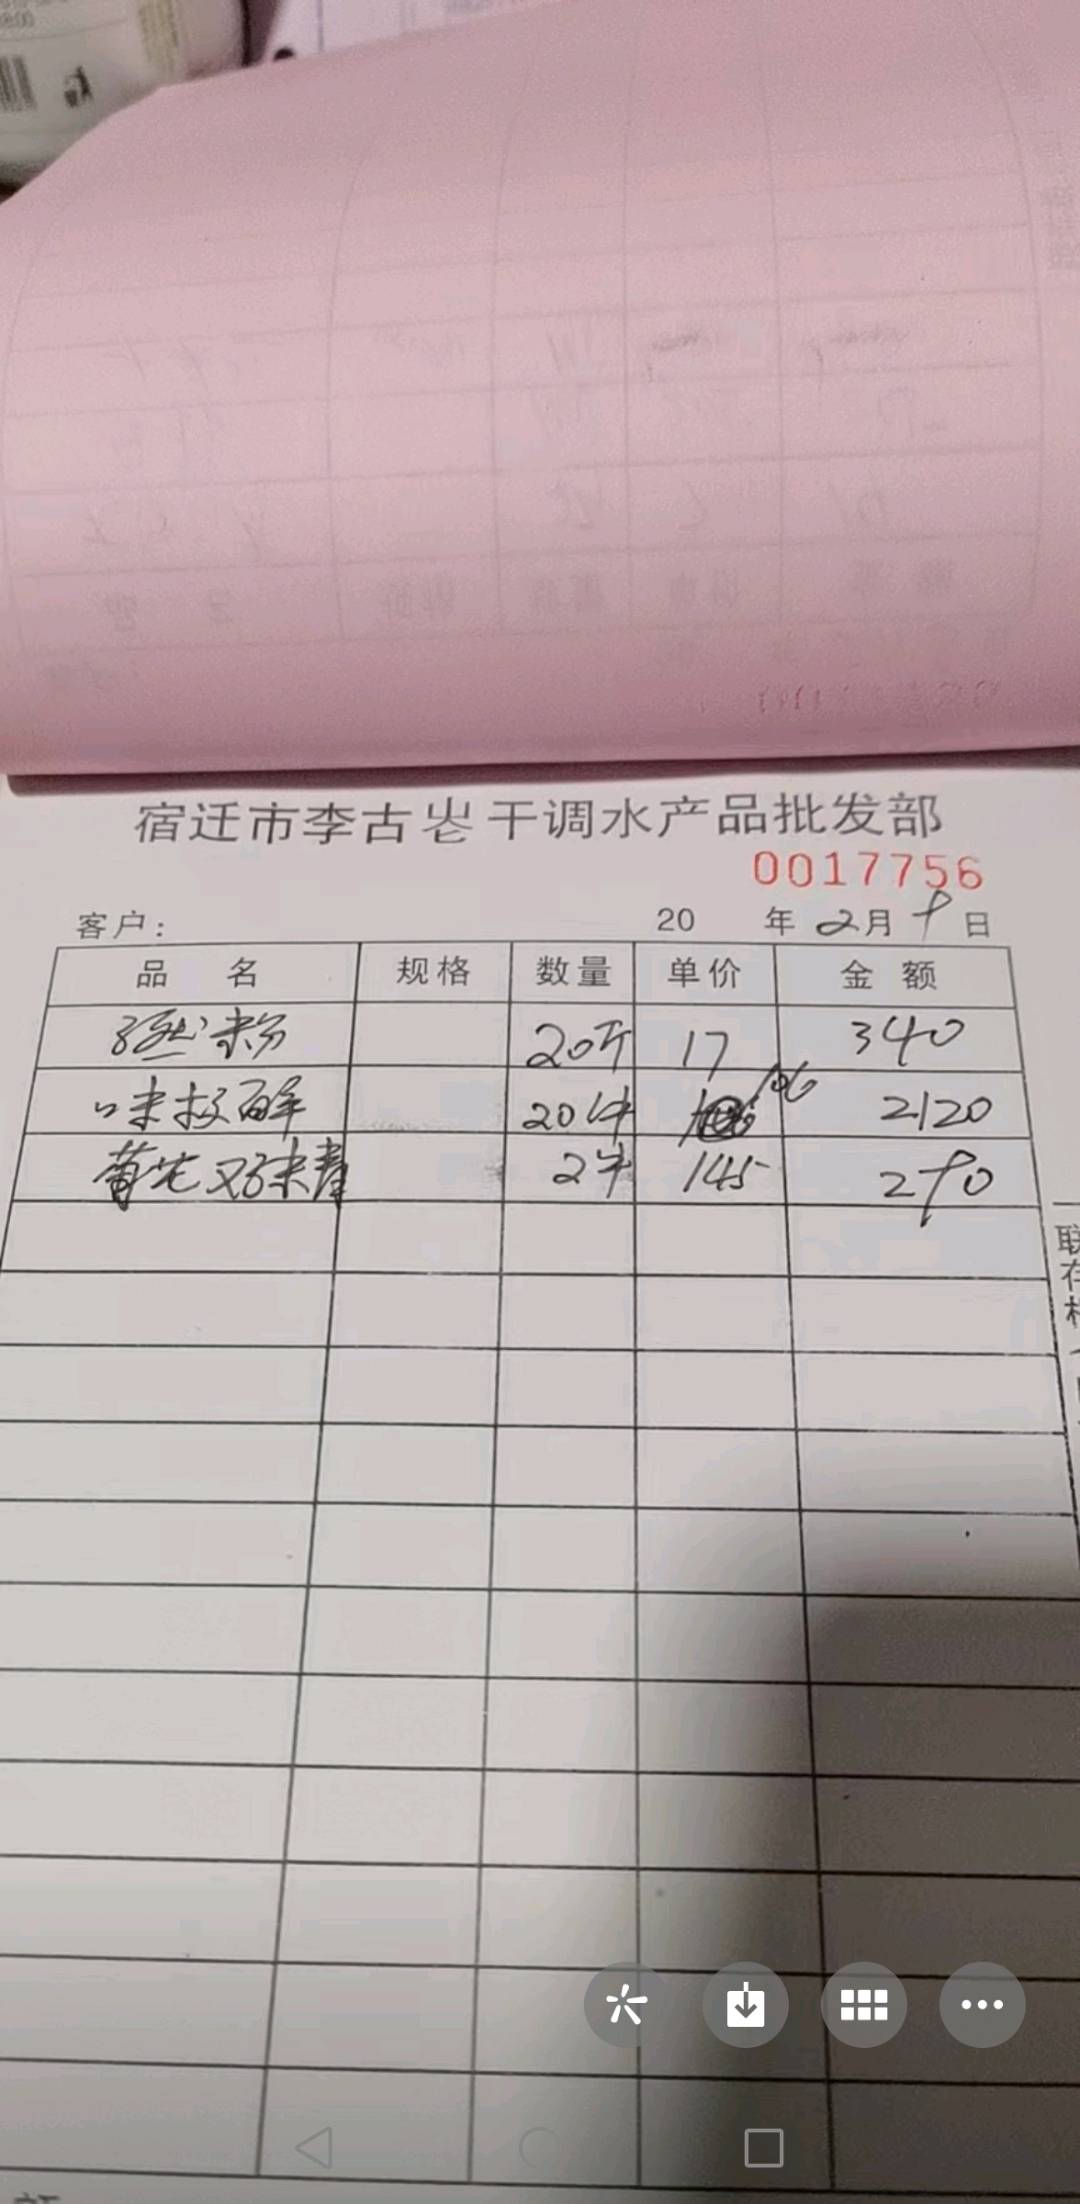 宿迁市李古岜干调水产品批发部
0017756
客户： 20 年 2月 9日
品 名 规格 数量 单价 金 额
孜然粉 20斤 17 340
味极鲜 20件 106 2120
2件 145 290
联
存